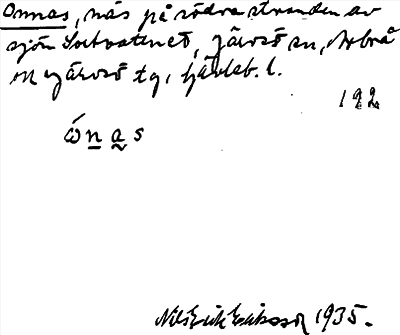 Onnas, näs på södra stranden av
sjön Svartvattnet, Järvsö sn, Arbrå
o. Järvsö tg, Gävleb. l.
192
ὠnas
Nils Erik Eriksson 1935.